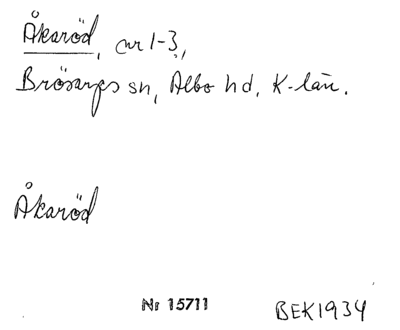 Åkaröd, nr 1-3,
Brösarps sn, Albo hd, K-län.
Åkaröd
Nr 15711
BEK1934